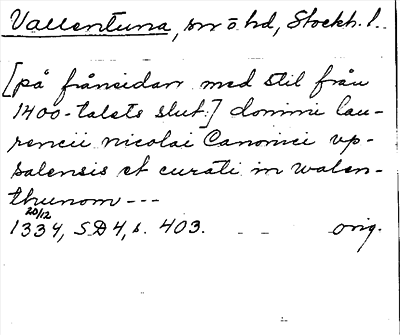 Vallentuna, sn ö. hd, Stockh. l.
[på frånsidan med stil från
1400-talets slut:] domini lau-
rencii nicolai Canonici vp-
salensis et curati in walen-
thunom ---
20/12
1334, SD4, s. 403. - - orig.